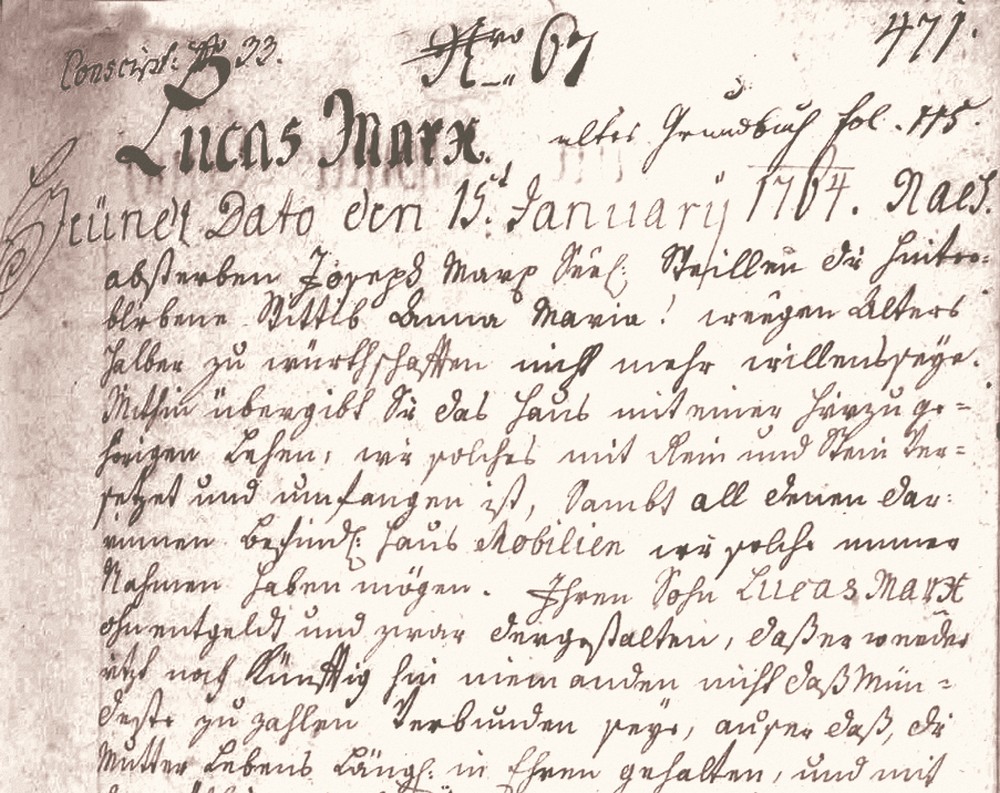 Conscript: No 33. Nro 67 471.
Lucas Marx, altes Grundbuch fol. 115.
Heündt Dato den 15t January 1764. Nach
absterben Joseph Marx Seel: die hinter-
blibene Wittib Anna Maria! weegen Alters
halber zu würthschafften nicht mehr willens seye.
Mithin übergibt Sie das Haus mit einer hierzu ge=
hörigen Lehen, wie solches mit Rein und Stein Ver=
setzet und umfangen ist, Sambt all denen dar:
innen befindl: Haus Mobilien wie solche immer
Nahmen haben mögen. Ihren Sohn Lucas Marx
ohnentgeldt und zwar dergestalten, daß er weeder
itzt noch Künfftig hin niemanden nicht daß Mün=
deste zu zahlen Verbunden seye, auser daß, die
Mutter Lebens Längl: in Ehren gehalten, und mit